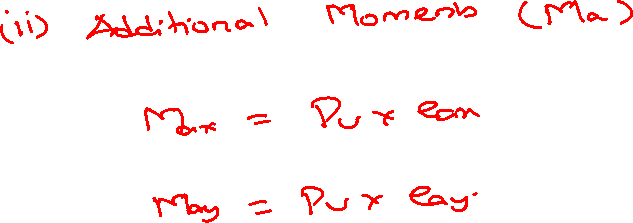 (ii) Additional Moments (Ma)
Max = Pu x eax
May = Pu x eay.